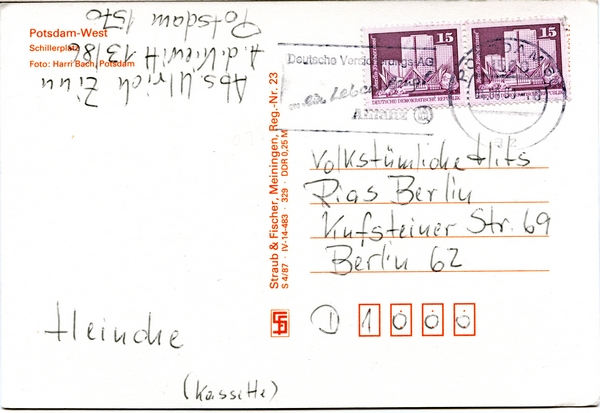 Potsdam-West
Schillerplatz
Foto: Harri Bach, Potsdam
Abs. Ulrich Zinn
A. d. Kiewitt 13/86
Potsdam 1570
Deutsche Versicherungs-AG
ein Leben
Allianz
15
15
DEUTSCHE DEMOKRATISCHE REPUBLIK
DEUTSCHE DEMOKRATISCHE REPUBLIK
Straub & Fischer, Meiningen, Reg.-Nr. 23
S 4/87 · IV-14-483 · 329 · DDR 0,25 M
Volkstümliche Hits
Rias Berlin
Kufsteiner Str. 69
Berlin 62
D 1000
Heincke
(Kassette)